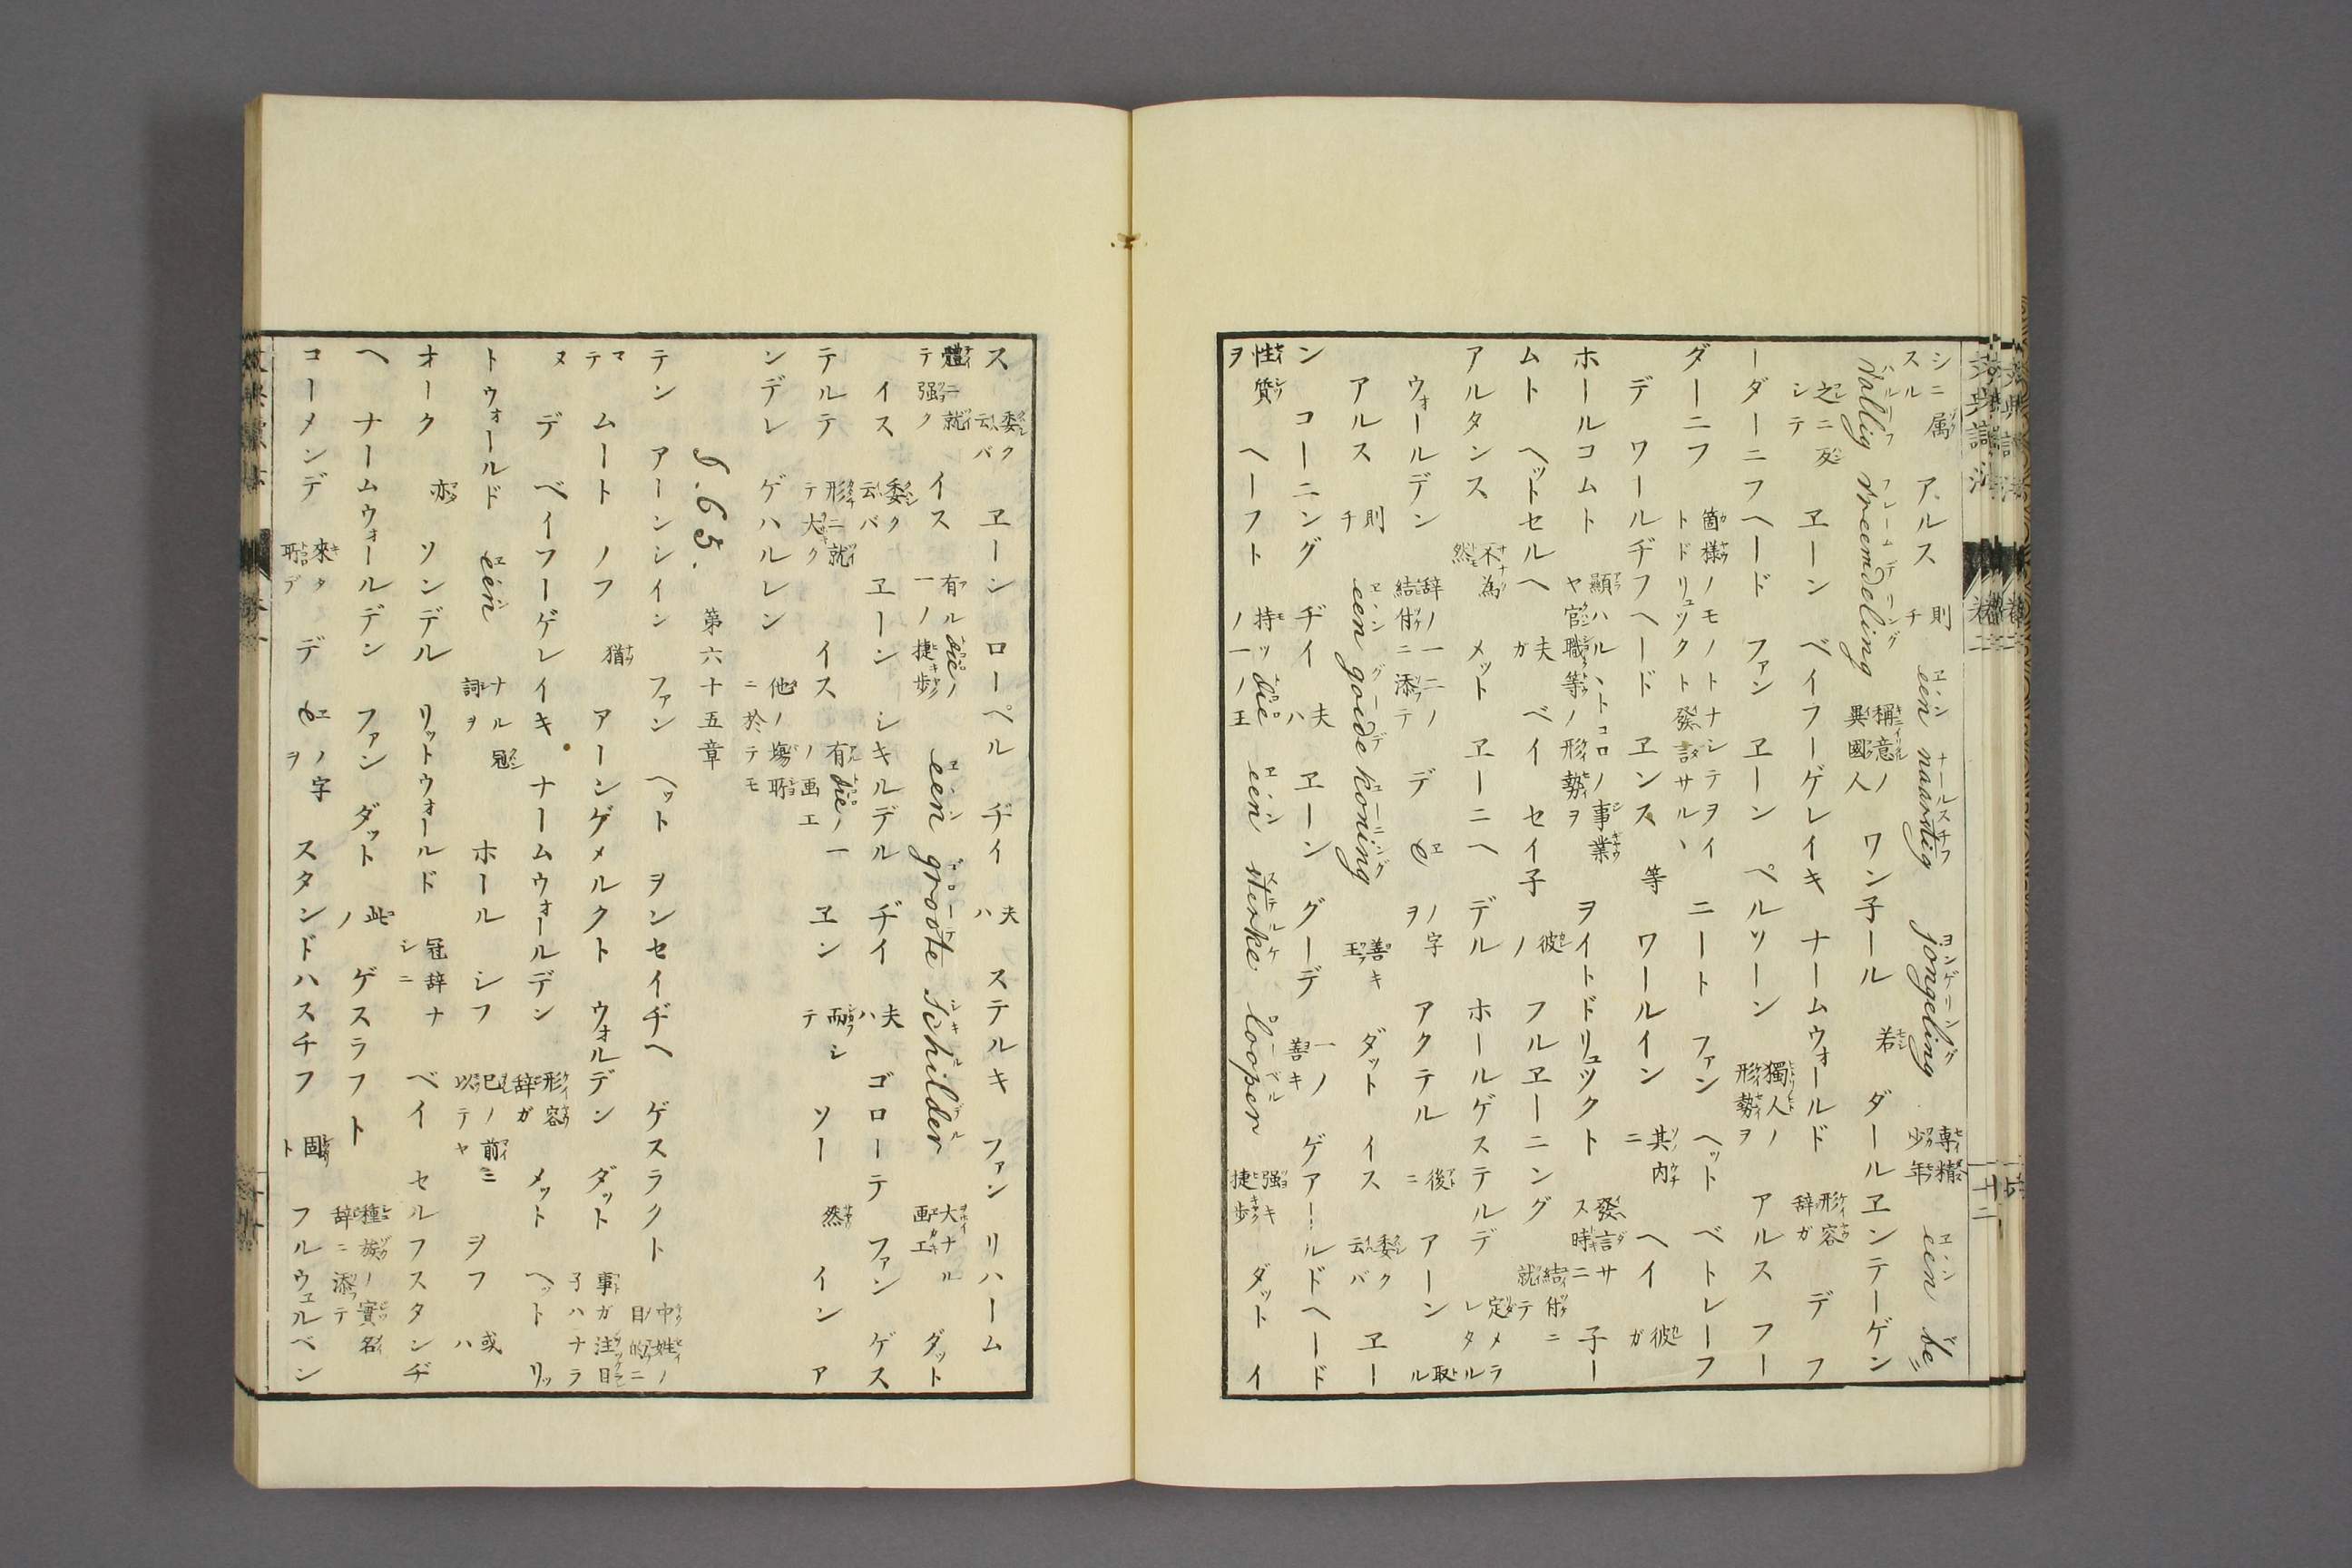 シニ属スル アルス 則チ een naartig jongeling 専精少年 een be=
vallig vreemdeling 稱意ノ異國人 ワン子ール 若 ダールエンテーゲン
之ニ反シテ ヱーン ベイフーゲレイキ ナームウォールド 形容辞ガ デ フ
ーダーニフヘード ファン ヱーン ペルソーン 獨人ノ形勢ヲ アルス フー
ダーニフ 箇様ノモノトナシテヲイトドリュックト發言サルヽ ニート ファン ヘット ベトレーフ
デ ワールヂフヘード ヱンス 等 ワールイン 其内ニ ヘイ 彼ガ
ホールコムト 顯ハルヽトコロノ事業ヤ官職等ノ形勢ヲ ヲイトドリュックト 發言サス時ニ 子ー
ムト ヘットセルヘ 夫ガ ベイ セイ子 彼ノ フルヱーニング 結付ニ就テ
アルタンス 不為然 メット ヱーニヘ デル ホールゲステルデ 定メラレタル
ウォールデン 辞ノ一二ノ結付ニ添テ デ e ノ字ヲ アクテル 後ニ アーン 取ル
アルス 則チ een goede koning 善キ王 ダット イス 委ク云バ ヱー
ン コーニング ヂイ 夫ハ ヱーン グーデ 一ノ善キ ゲアールドヘード
性質ヲ ヘーフト 持ッ die ノ一ノ王 een sterke looper 强キ捷歩 ダット イ
ス 委ク云バ ヱーン ローペル ヂイ 夫ハ ステルキ ファン リハーム
體ニ就テ强ク イス 有ル die ノ一ノ捷歩 een groote Schilder 大ナル画工 ダット
イス 委ク云バ ヱーン シキルデル ヂイ 夫ハ ゴローテ ファン ゲス
テルテ 形ニ就テ大ク イス 有 die ノ一ノ画工 ヱン 而シテ ソー 然 イン ア
ンデレ ゲハルレン 他ノ塲所ニ於テモ
§. 65. 第六十五章
テン アーンシイン ファン ヘット ヲンセイヂヘ ゲスラクト 中姓ノ目的ニ
マテ ムート ノフ 猶 アーンゲメルクト ウォルデン ダット 事ガ注目子ハナラ
ヌ デ ベイフーゲレイキ ナームウォールデン 形容辞ガ メット ヘット リッ
トウォールド een ナル冠詞ヲ ホール シフ 己ノ前ニ以テヤ ヲフ 或ハ
オーク 亦 ソンデル リットウォールド 冠辞ナシニ ベイ セルフスタンヂ
ヘ ナームウォールデン ファン ダット 此ノ ゲスラフト 種族ノ實名辞ニ添テ
コーメンデ 來タ所デ デ e ノ字ヲ スタンドハスチフ 固ト フルウェルペン